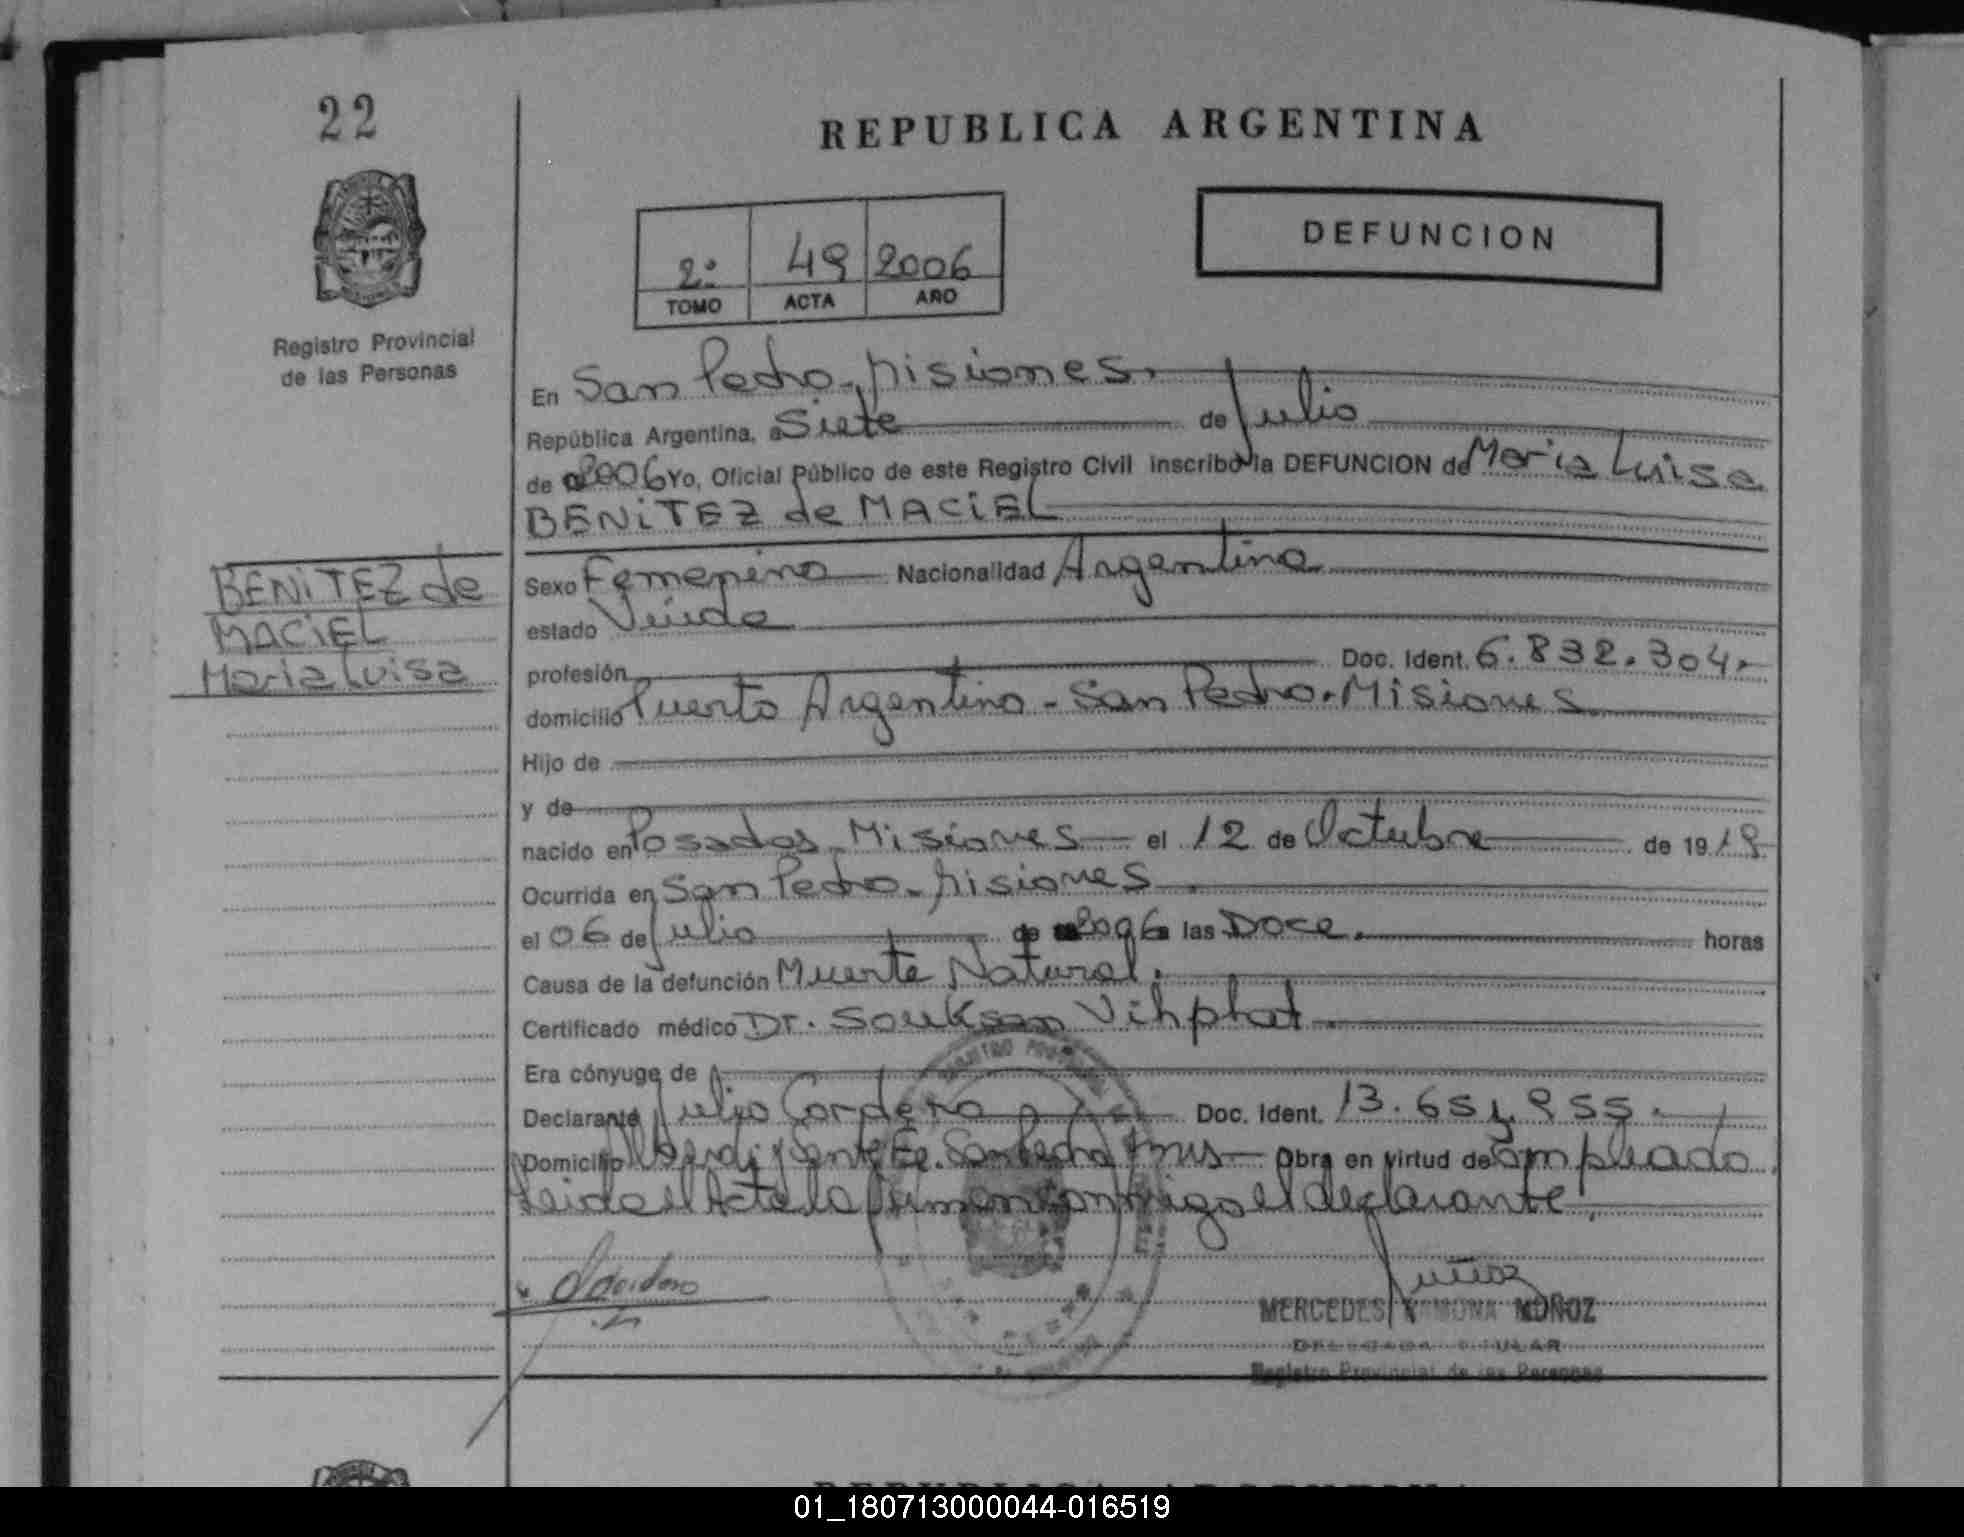 22
REPUBLICA ARGENTINA
DEFUNCION
2º 49 2006
TOMO ACTA AÑO
Registro Provincial
de las Personas
En San Pedro - Misiones.
República Argentina, a Siete de Julio
de 2006 Yo, Oficial Público de este Registro Civil inscribo la DEFUNCION de Maria Luisa
BENiTEZ de MACiEL
BENiTEZ de
MACiEL
Maria Luisa
Sexo Femenino Nacionalidad Argentina
estado Viuda
profesión Doc. Ident. 6.832.304.-
domicilio Puerto Argentino - San Pedro - Misiones
Hijo de
y de
nacido en Posadas - Misiones el 12 de Octubre de 19 19
Ocurrida en San Pedro - Misiones
el 06 de Julio de 2006 a las Doce. horas
Causa de la defunción Muerte Natural.
Certificado médico Dr. Souksan Vihphat.
Era cónyuge de
Declarante Julio Cordero Doc. Ident. 13.
Domicilio San Pedro Mnes Obra en virtud de ampliado
Leida el Acta la firman conmigo el declarante.
MERCEDES RAMONA MUÑOZ
DELEGADA TITULAR
Registro Provincial de las Personas
REPUBLICA ARGENTINA
01_180713000044-016519